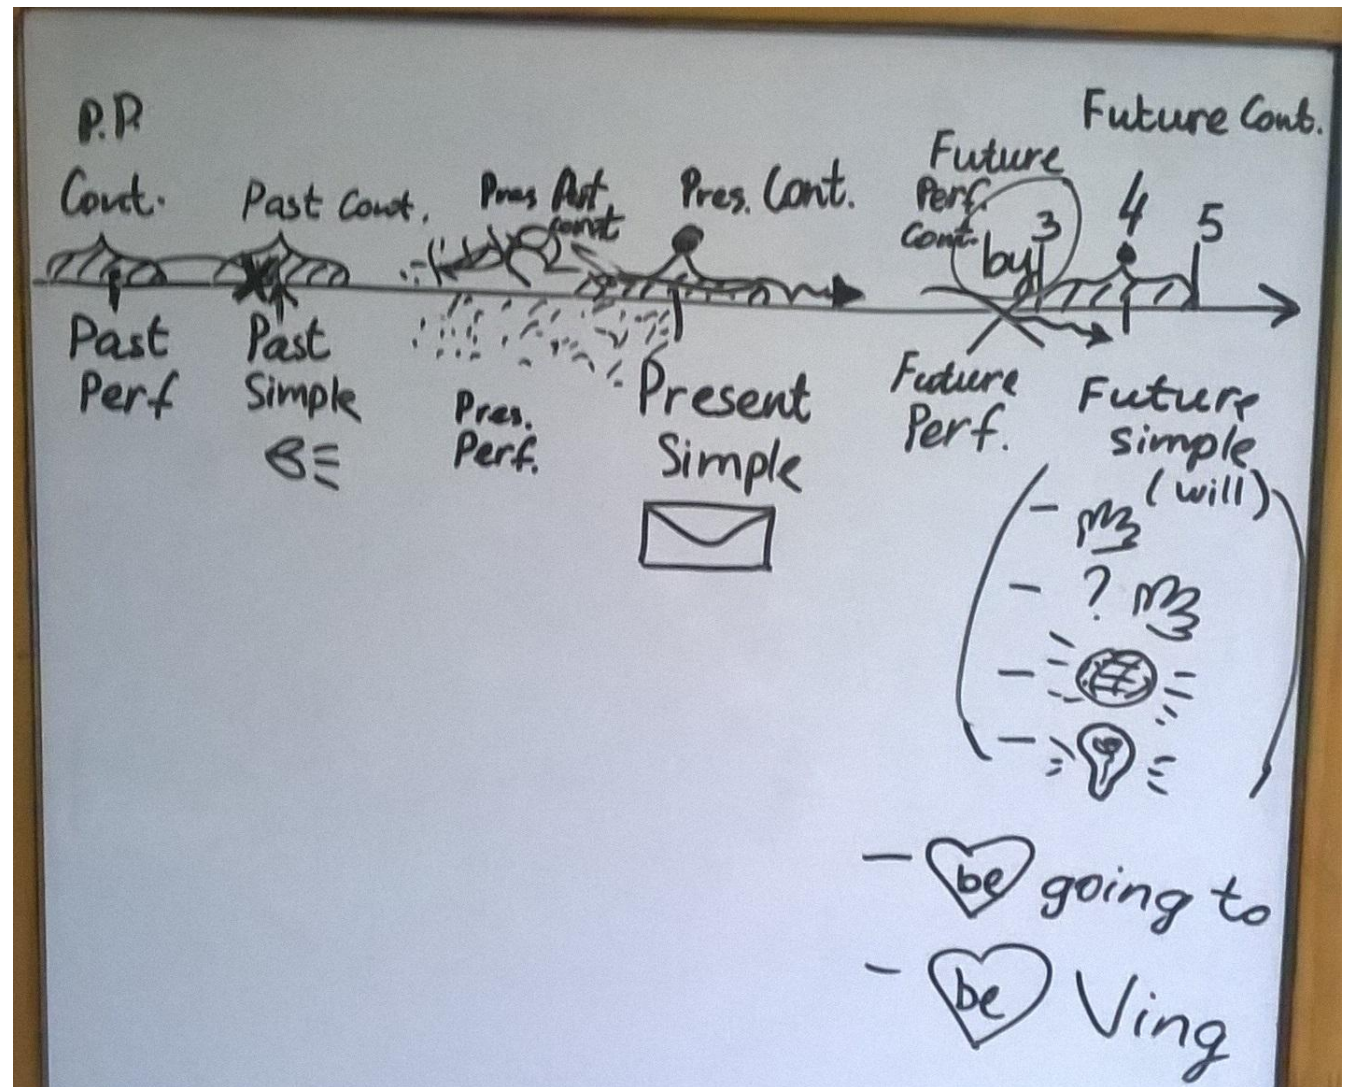 P.P.
Cont.
Past Cont.
Pres.
cont
Pres. Cont.
Future
Perf.
Cont.
by 3
Future Cont.
4
5
Past
Perf
Past
Simple
Pres.
Perf.
Present
Simple
Future
Perf.
Future
Simple
(will)
?
be going to
be Ving